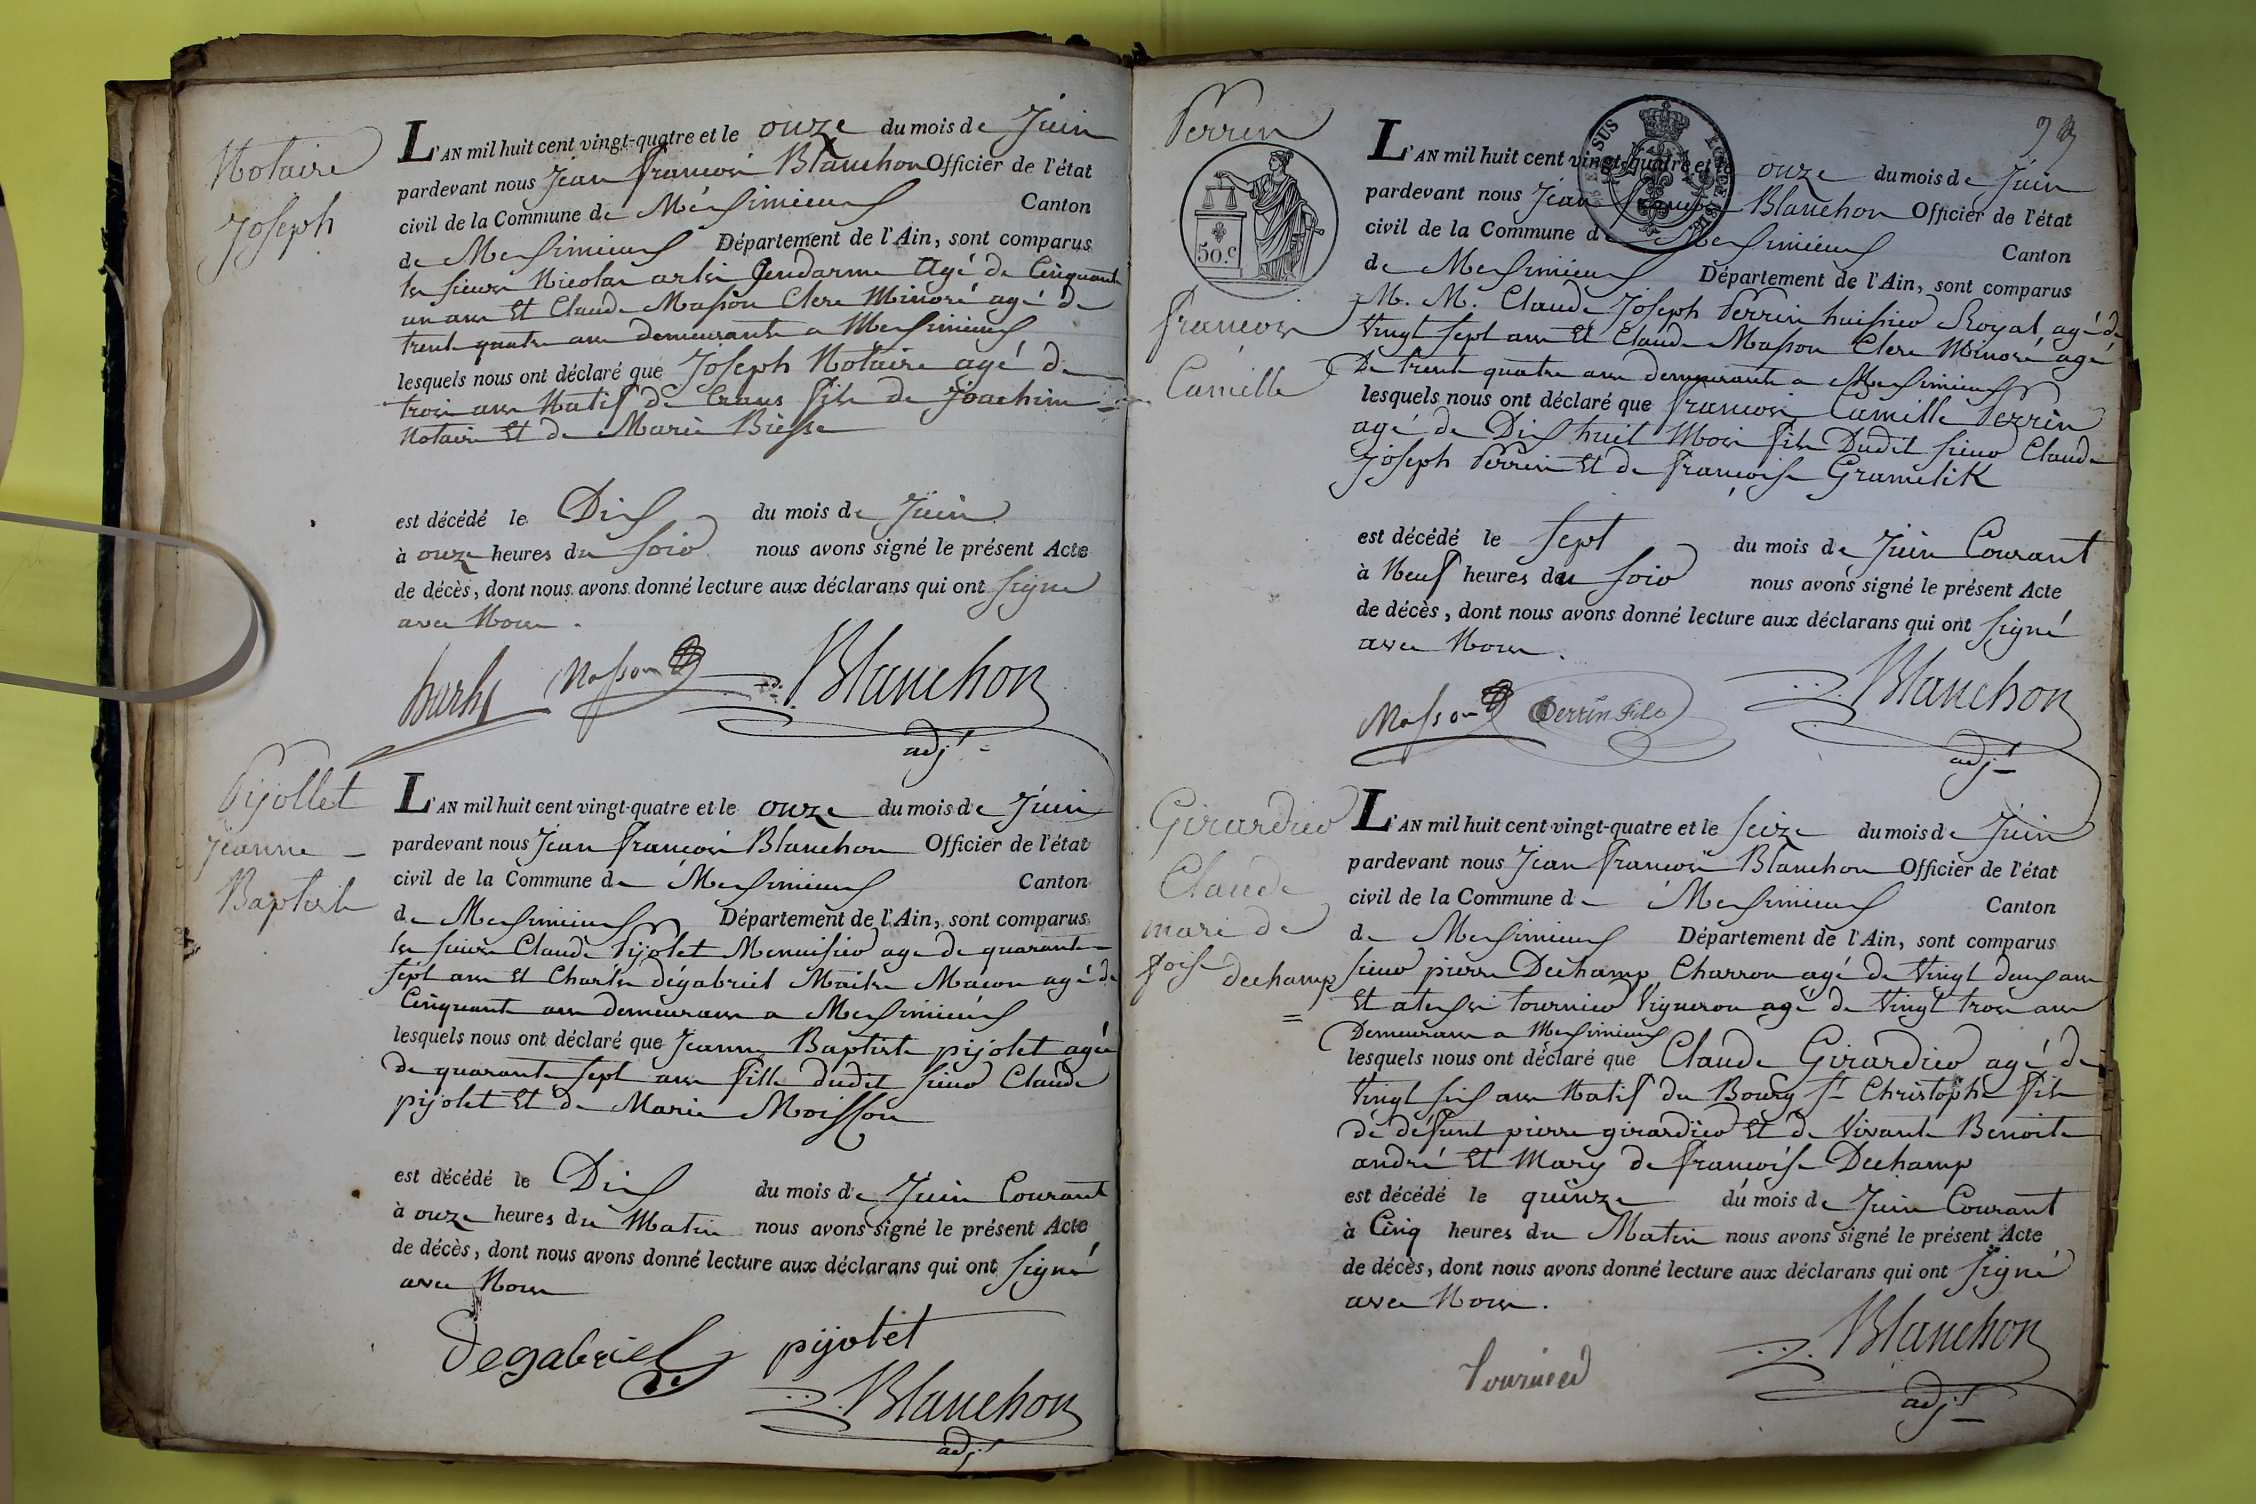 Notaire
Joseph
L'AN mil huit cent vingt-quatre et le onze du mois de Juin
pardevant nous Jean françois Blanchon Officier de l'état
civil de la Commune de Meximieux Canton
de Meximieux Département de l'Ain, sont comparus
les sieurs Nicolas Gendarme agé de Cinquante
un ans Et Claude Masson Clerc Minoré agé de
trente quatre ans demeurants a Meximieux
lesquels nous ont déclaré que Joseph Notaire agé de
trois ans Natif de Crans fils de Joachim
Notaire Et de Marie Biesse
est décédé le Dix du mois de Juin
à onze heures du soir nous avons signé le présent Acte
de décès, dont nous avons donné lecture aux déclarans qui ont signé
avec Nous.
Masson Blanchon
adjt
Pijollet
Jeanne
Baptiste
L'AN mil huit cent vingt-quatre et le onze du mois de Juin
pardevant nous Jean françois Blanchon Officier de l'état
civil de la Commune de Meximieux Canton
de Meximieux Département de l'Ain, sont comparus
les sieurs Claude Pijolet Menuisier age de quarante
sept ans Et Charles dégabriel Maitre Macon agé de
Cinquante ans demeurans a Meximieux
lesquels nous ont déclaré que Jeanne Baptiste pijolet agée
de quarante sept ans fille dudit sieur Claude
pijolet Et de Marie Moisson
est décédé le Dix du mois de Juin Courant
à onze heures du Matin nous avons signé le présent Acte
de décès, dont nous avons donné lecture aux déclarans qui ont signé
avec Nous
Degabriel pijolet
Blanchon
adjt
Perrin
50.c
françois
Camille
L'AN mil huit cent vingt-quatre et le onze du mois de Juin
pardevant nous Jean françois Blanchon Officier de l'état
civil de la Commune de Meximieux Canton
de Meximieux Département de l'Ain, sont comparus
M. M. Claude Joseph Perrin huissier Royal agé de
Vingt sept ans Et Claude Masson Clerc Minoré agé
De trente quatre ans demeurants a Meximieux
lesquels nous ont déclaré que françois Camille Perrin
agé de Dix huit Mois fils Dudit sieur Claude
Joseph Perrin Et de françoise Gramelik
est décédé le sept du mois de Juin Courant
à Neuf heures du soir nous avons signé le présent Acte
de décès, dont nous avons donné lecture aux déclarans qui ont signé
avec Nous.
Masson Perrin Fils Blanchon
adjt
Girardier
Claude
mari de
foise dechamp
L'AN mil huit cent vingt-quatre et le seize du mois de Juin
pardevant nous Jean françois Blanchon Officier de l'état
civil de la Commune de Meximieux Canton
de Meximieux Département de l'Ain, sont comparus
sieur pierre Dechamp Charron agé de Vingt deux ans
Et Tournier Vigneron agé de Vingt trois ans
Demeurans a Meximieux
lesquels nous ont déclaré que Claude Girardier agé de
Vingt six ans Natif du Bourg St Christophe fils
de défunt pierre girardier Et de Vivante Benoite
andré Et Mary de françoise Dechamp
est décédé le quinze du mois de Juin Courant
à Cinq heures du Matin nous avons signé le présent Acte
de décès, dont nous avons donné lecture aux déclarans qui ont signé
avec Nous.
Tournier Blanchon
adjt